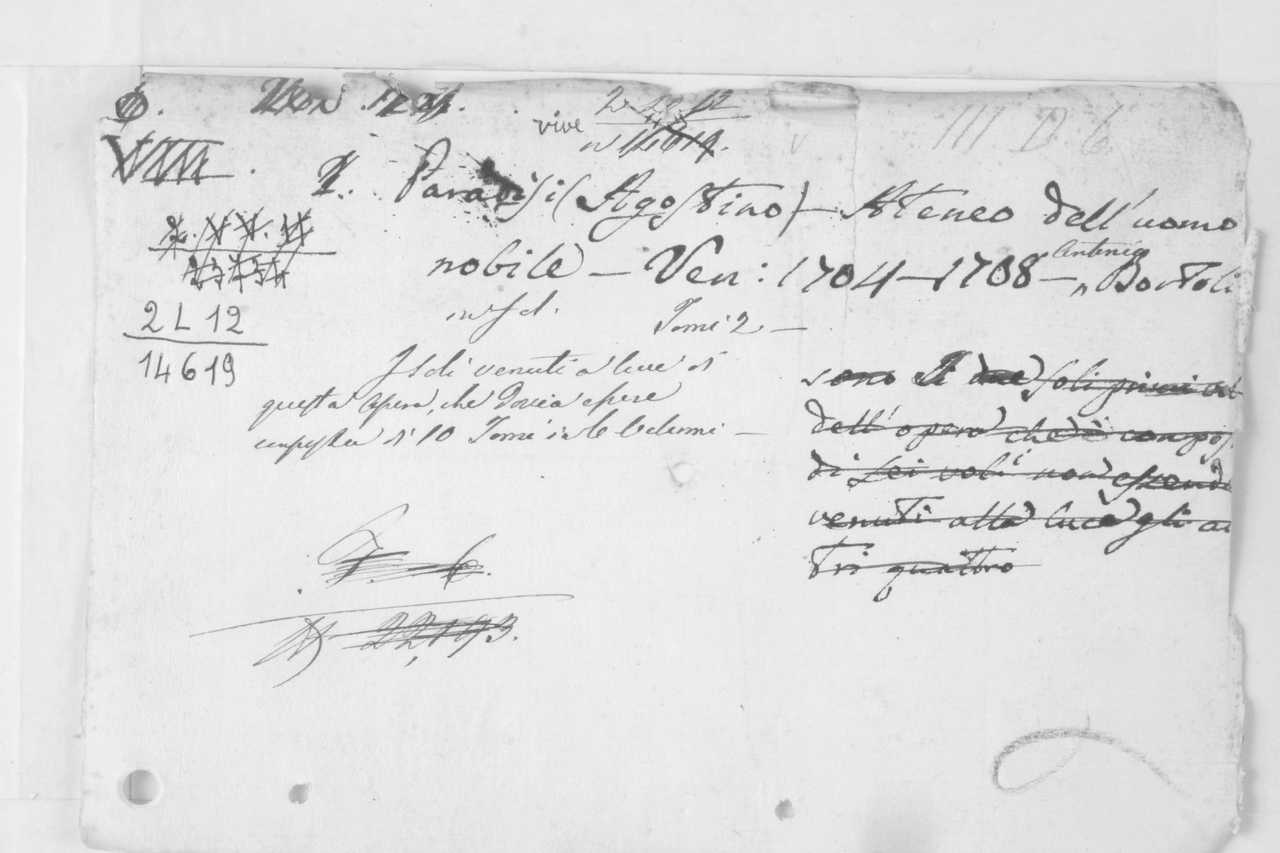 vive
2 L 12
14619.
III D 6
Paradisi (Agostino) – Ateneo dell'uomo
nobile – Ven: 1704–1708 – Antonio Bortoli
in fol. Tomi 2 –
2 L 12
14619
venuti a luce di
questa opera, che dovea essere
composta di 10 Tomi
sono I due soli primi
dell'opera che è compos
di sei voli non essend
venuti alla luce gli al
tri quattro
22,193.